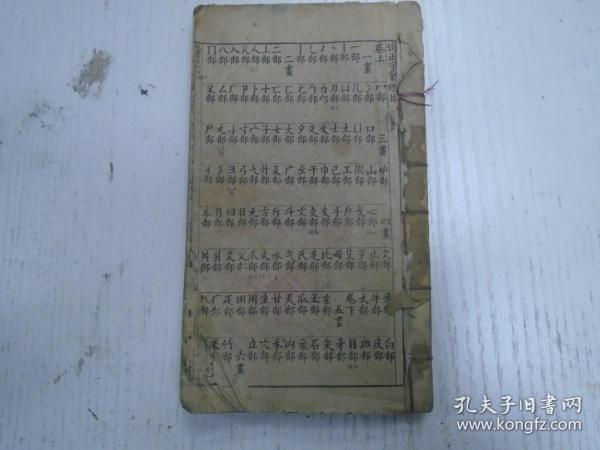 正字彙總目
卷上 一畫 一部 丨部 丶部 丿部 乙部 亅部 二畫 二部 亠部 人部 儿部 入部 八部 冂部
冖部 冫部 几部 凵部 刀部 力部 勹部 匕部 匚部 匸部 十部 卜部 卩部 厂部 厶部 又部
三畫 口部 囗部 土部 士部 夂部 夊部 夕部 大部 女部 子部 宀部 寸部 小部 尢部 尸部
屮部 山部 巛部 工部 己部 巾部 干部 幺部 广部 廴部 廾部 弋部 弓部 彐部 彡部 彳部
四畫 心部 戈部 戶部 手部 支部 攴部 文部 斗部 斤部 方部 无部 日部 曰部 月部 木部
欠部 止部 歹部 殳部 毋部 比部 毛部 氏部 气部 水部 火部 爪部 父部 爻部 爿部 片部
牙部 牛部 犬部 卷下 五畫 玄部 玉部 瓜部 瓦部 甘部 生部 用部 田部 疋部 疒部 癶部
白部 皮部 皿部 目部 矛部 矢部 石部 示部 禸部 禾部 穴部 立部 六畫 竹部 米部
孔夫子旧书网
www.kongfz.com